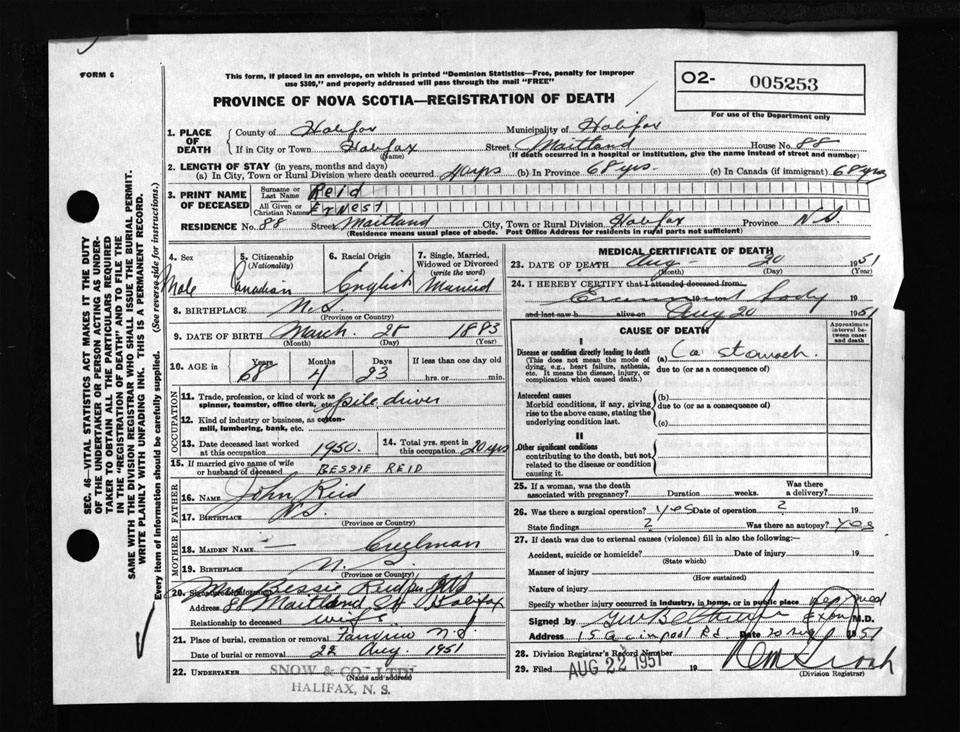 FORM 6
This form, if placed in an envelope, on which is printed "Dominion Statistics—Free, penalty for improper
use $300," and properly addressed will pass through the mail "FREE"
PROVINCE OF NOVA SCOTIA—REGISTRATION OF DEATH
O2- 005253
For use of the Department only
1. PLACE OF DEATH
County of Halifax Municipality of Halifax
If in City or Town Halifax Street Maitland House No. 88
(Name) (If death occurred in a hospital or institution, give the name instead of street and number)
2. LENGTH OF STAY (in years, months and days)
(a) In City, Town or Rural Division where death occurred (b) In Province 68 yrs. (c) In Canada (if immigrant) 68 yrs
3. PRINT NAME OF DECEASED
Surname or Last Name Reid
All Given or Christian Names Ernest
RESIDENCE No. 88 Street Maitland City, Town or Rural Division Halifax Province N.S.
(Residence means usual place of abode. Post Office Address for residents in rural parts not sufficient)
4. Sex
Male
5. Citizenship
(Nationality)
Canadian
6. Racial Origin
English
7. Single, Married, Widowed or Divorced
(write the word)
Married
8. BIRTHPLACE N.S.
(Province or Country)
9. DATE OF BIRTH March 28 1883
(Month) (Day) (Year)
10. AGE in Years Months Days If less than one day old
68 4 23 hrs. or min.
OCCUPATION
11. Trade, profession, or kind of work as
spinner, teamster, office clerk, etc. pile driver
12. Kind of industry or business, as cotton-
mill, lumbering, bank, etc.
13. Date deceased last worked
at this occupation 1950.
14. Total yrs. spent in
this occupation 20 yrs
15. If married give name of wife
or husband of deceased BESSIE REID
FATHER
16. NAME John Reid
17. BIRTHPLACE N.S.
(Province or Country)
MOTHER
18. MAIDEN NAME — Creelman
19. BIRTHPLACE N.S.
(Province or Country)
20. Signature of informant Mrs Bessie Reid per
Address 88 Maitland St Halifax
Relationship to deceased wife
21. Place of burial, cremation or removal N.S.
Date of burial or removal 22 Aug. 1951
22. UNDERTAKER SNOW & CO. LTD.
HALIFAX, N. S.
MEDICAL CERTIFICATE OF DEATH
23. DATE OF DEATH Aug 20 1951
(Month) (Day)
24. I HEREBY CERTIFY that I attended deceased from:
19
and last saw h alive on Aug 20 1951
CAUSE OF DEATH
Approximate
interval be-
tween onset
and death
I
Disease or condition directly leading to death (a) Ca stomach.
(This does not mean the mode of
dying, e.g., heart failure, asthenia,
etc. It means the disease, injury, or
complication which caused death.)
due to (or as a consequence of)
Antecedent causes
Morbid conditions, if any, giving
rise to the above cause, stating the
underlying condition last.
(b)
due to (or as a consequence of)
(c)
II
Other significant conditions
contributing to the death, but not
related to the disease or condition
causing it.
25. If a woman, was the death
associated with pregnancy? Duration weeks. Was there
a delivery?
26. Was there a surgical operation? yes Date of operation ?
State findings ? Was there an autopsy? yes
27. If death was due to external causes (violence) fill in also the following:—
Accident, suicide or homicide? Date of injury 19
(State which)
Manner of injury
(How sustained)
Nature of injury
Specify whether injury occurred in industry, in home, or in public place
Signed by M.D.
Address Date 20 Aug 1951
28. Division Registrar's Record Number
29. Filed AUG 22 1951 19
(Division Registrar)
SEC. 46—VITAL STATISTICS ACT MAKES IT THE DUTY
OF THE UNDERTAKER OR PERSON ACTING AS UNDER-
TAKER TO OBTAIN ALL THE PARTICULARS REQUIRED
IN THE "REGISTRATION OF DEATH" AND TO FILE THE
SAME WITH THE DIVISION REGISTRAR WHO SHALL ISSUE THE BURIAL PERMIT.
WRITE PLAINLY WITH UNFADING INK. THIS IS A PERMANENT RECORD.
Every item of information should be carefully supplied. (See reverse side for instructions.)